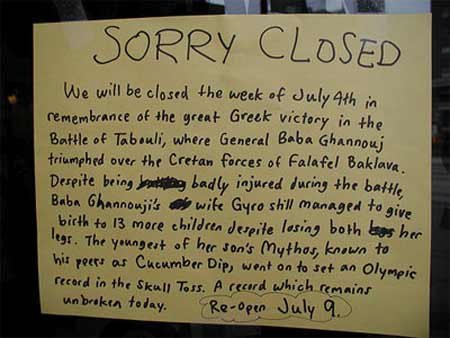 SORRY CLOSED
We will be closed the week of July 4th in
remembrance of the great Greek victory in the
Battle of Tabouli, where General Baba Ghannouj
triumphed over the Cretan forces of Falafel Baklava.
Despite being badly injured during the battle,
Baba Ghannouji's wife Gyro still managed to give
birth to 13 more children despite losing both her
legs. The youngest of her son's Mythos, known to
his peers as Cucumber Dip, went on to set an Olympic
record in the Skull Toss. A record which remains
unbroken today. Re-open July 9.